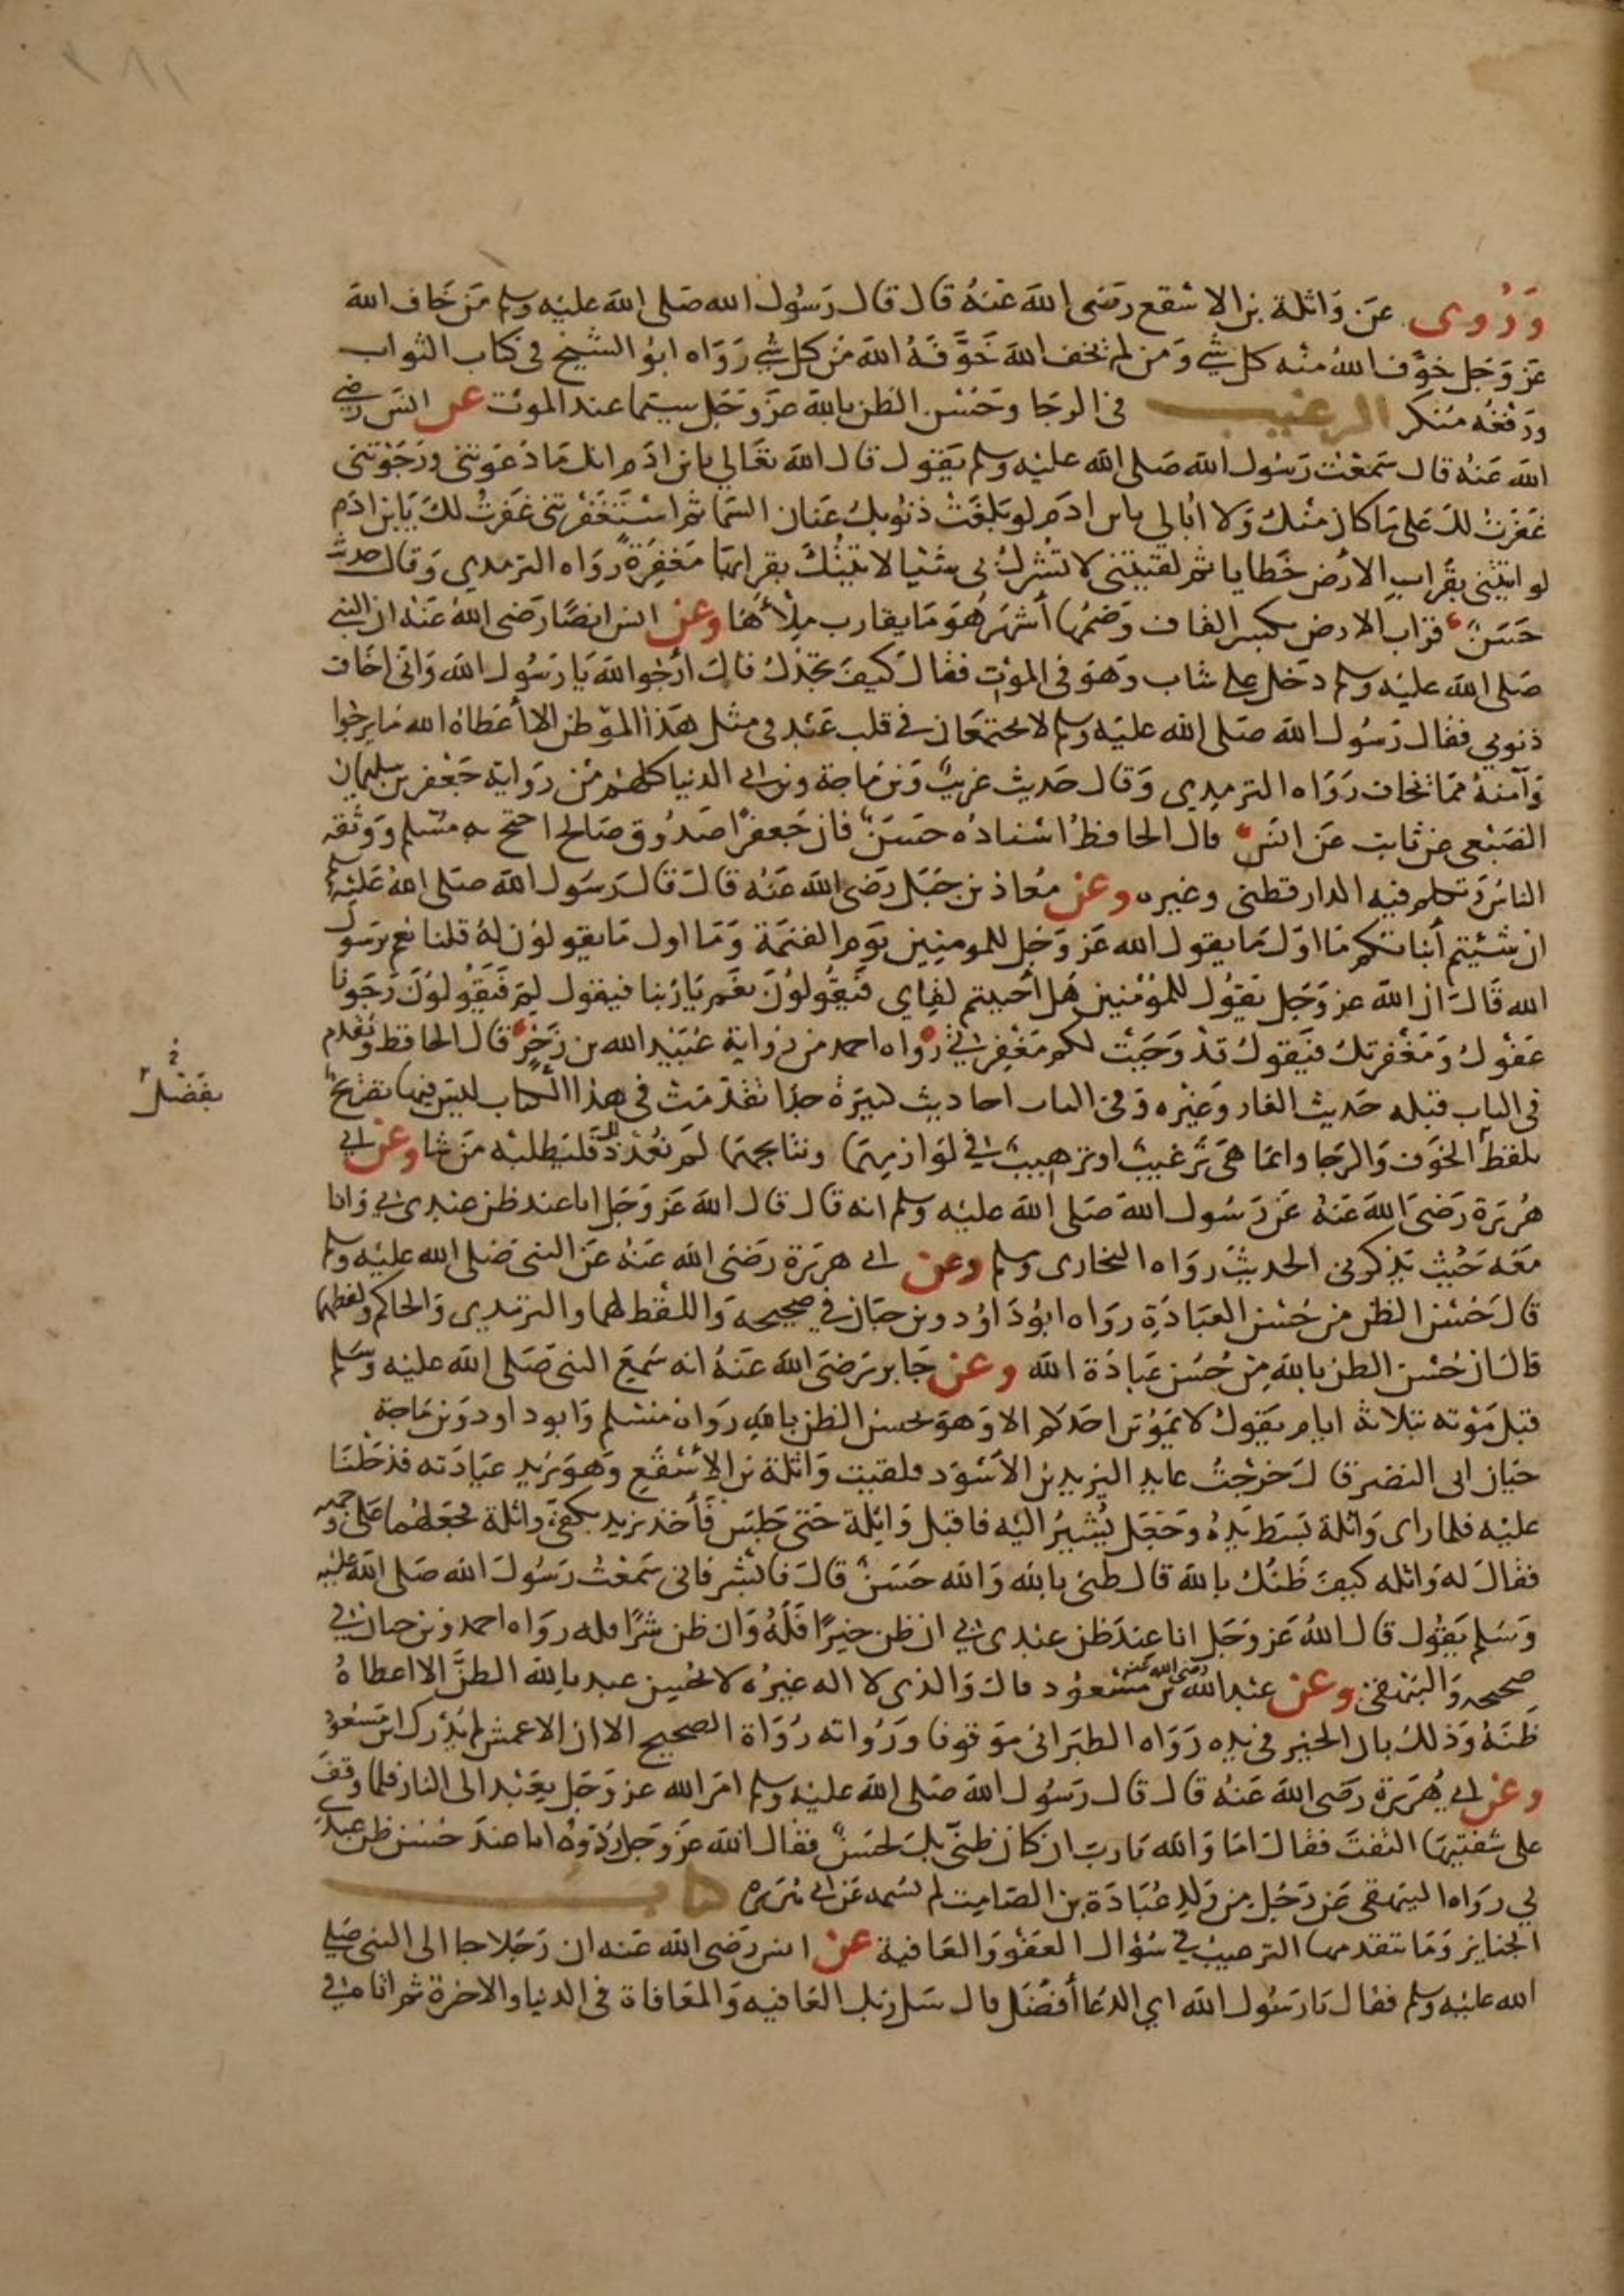 وَرُوى عَن وَاثلة بن الاسقع رَضى الله عَنهُ قال قال رَسُول الله صَلى الله عليْه وسلم مَن خَاف الله
عَز وَجَل خوَّف اللهُ منْه كل شي وَمن لم يخف الله خَوَّفَهُ الله من كل شي رَوَاه ابوُ الشيخ في كتاب الثواب
ورَفعُه مُنكر الرغيب في الرجَا وحَسْن الظن بالله عَز وَجَل سيتما عند الموت عن انس رضي
الله عَنهُ قال سَمعْت رَسُول الله صَلى الله عليْه وسلم يَقول قال الله تعَالي يابن ادَم انك مَا دَعَوتني ورَجَوْتني
غفَرت لكَ عَلى مَا كان منْك وَلا أبَالي يابن ادَم لو بَلغَت ذنُوبك عَنان السَما ثم اسْتَغفَرتني غَفَرتُ لكَ يَا بن ادَم
لو اتيتني بقُرابِ الأرْض خَطايا ثم لقيتني لا تُشْركُ بي شئيا لاتيْتُكَ بقرابها مَغفِرَةً رَوَاه الترمدي وَقال حديث
حَسَن قراب الارض بكسر القاف وَضمُها أشهَر هُوَ مَا يقارب مِلأهَا وعن انس ايضًا رَضى اللهُ عَنْه ان النبي
صَلى الله عليْه وسلم دَخل على شاب وَهوَ في الموْتِ فقال كَيفَ تجدُك قالَ أرْجُوا الله يَا رَسُول الله وَاني اخَاف
ذنوبي فقال رَسُول الله صَلى الله عليَه وسلم لا يجتمعَان في قلب عَبْد في مثل هَذا الموْطن الا أعَطاهُ الله مَا يرجُوا
وَآمنهُ ممَا يخاف رَوَاه الترمدي وَقال حَديث غريبٌ وَبن مَاجة وبن ابي الدنيا كلهُم من رَواية جَعْفر بن سليمان
الضبَعي عن ثابت عَن انسَ قال الحافظُ اسْنادُه حَسَنٌ فان جَعفرًا صَدُوق صَالح احتج به مسْلم وَوَثقه
الناس وَتكلم فيه الدارقطني وغيره وعَن مُعاذ بن جَبَل رَضى الله عَنْه قال قالَ رَسُول الله صَلى الله عَليْه وسلم
ان شئيتم أنباتكم مَا اوَل مَا يقول الله عَز وَجَل للمومنِين يَوَم القيَمَة وَمَا اول مَا يقولوُن لهُ قلنا نعم يرسَول
الله قَالَ ان الله عز وَجَل يَقوُل للمؤْمنين هَل أحْببتم لقاي فَيَقُولوُنَ نعَم يَا رَبنا فيَقول لِمَ فَيَقُولوُنَ رَجَونا
عَفوْك وَمَغْفرتك فيَقولُ قدْ وَجَبَت لكم مَغفِرتي رَوَاه احمد من رَواية عُبَيْد الله بن زَحْرٍ قال الحَافظ وَتقدم
في الباب قبله حَديث الغار وَغيْره وَفي الباب احاديث كبيَرة جدًا تقدَمَت في هذا الكتاب ليس فيها تصريح
بلفظ الخوَف وَالرجَا وانما هي تَرغيبٌ اوترهيبٌ في لوَازمِهمَا ونتايجهمَا لم نُعدْ ذلك فليَطلبْه مَن شَا وعَن ابي
هُرَيرَة رَضىَ الله عَنهُ عَن رَسُول الله صَلى الله عليْه وسلم انه قال قال الله عَز وَجَل انا عند ظن عَبدي بي وَانا
مَعَه حَيث يَذكرني الحديث رَوَاه البخارى وسلم وعن ابي هرَيرَة رَضيَ الله عَنْه عَن النبي صَلى الله عليْه وسلم
قالَ حُسْن الظن من حُسْن العبَادَةِ رَوَاه ابوُ دَاوُد وبن حبَان في صحيحه وَاللفظ لهما والترمدي وَالحاكم ولفظهما
قال ان حُسْن الظن بالله مِن حُسن عبَادَة الله وعن جَابر رَضىَ الله عَنهُ انه سَمعَ النبي صَلى الله عليه وَسَلم
قبل مَوْته بثلاثة ايام يَقولُ لا يَموُتن احَدكم الا وَهوَ يحسن الظن بالله رَوَاه مسْلم وَابود اود وَبن مَاجة
حيَان ابي النضر قالَ خَرْجتُ عايد اليزيد بن الاسْوَد فلقيت وَاثلة بن الأسْقع وَهوَ يَريد عيَادَته فدَخلنَا
عليْه فلما راى وَاثلة بَسَط يَدهُ وَجَعَل يُشيرُ اليْه فاقبل وَاثلة حَتى جَلسَ فَأخَذ يزيد بكفىَّ واثلة فجَعَلهُما عَلى وَجهه
فقال له وَاثله كيَف ظنُك بالله قال ظني بالله وَالله حَسَنٌ قالَ فابْشر فاني سَمعْتُ رَسُولَ الله صَلى الله عليه
وَسَلم يَقُول قال اللهُ عَز وَجَل انا عِندَ ظن عَبْدى بي ان ظن خيَرًا فَلَهُ وَان ظن شَرًا فله رَوَاه احمد وبن حبان في
صحيحه وَالبيْهقي وعَن عبْد الله بن مَسْعُود رضى الله عنه قال وَالذي لا اله غيرُه لا يُحسن عبد بالله الظنَّ الا اعطاهُ
ظنَهُ وَذلك بان الخير في يَده رَوَاه الطبَراني مَوقوفا ورَوَاته رُوَاة الصحيح الا ان الاعمش لم يُدْرك ابن مَسعُود
وعَن ابي هُرَيرَة رَضي الله عَنهُ قال قال رَسُول الله صَلى الله عليْه وسلم امَر الله عز وَجَل بعَبْد الى النار فلما وَقفَ
على شفتهَا التفتَ فقال امَا وَالله يَا ربّ ان كان ظنىّ بك لحَسنٌ فقال الله عَز وَجَل رُدّوهُ انا عندَ حُسن ظن عبدي
بي رَوَاه البيهقي عَن رَجُل مِن وَلدِ عُبَادَة بن الصَامِت لم يسَمه عَن ابي هُرَيرة كتاب
الجنايز وَمَا يتقدمهَا الترغيبُ في سُؤال العَفو وَالعَافية عن انس رَضي الله عَنه ان رَجَلا جا الى النبي صَلي
الله عليْه وسلم فقال يَا رَسُول الله اي الدعَا أفضَل قال سَل رَبك العَافيه وَالمعَافاة في الدنيا والاخرة ثم اتاه في
بفَضْل